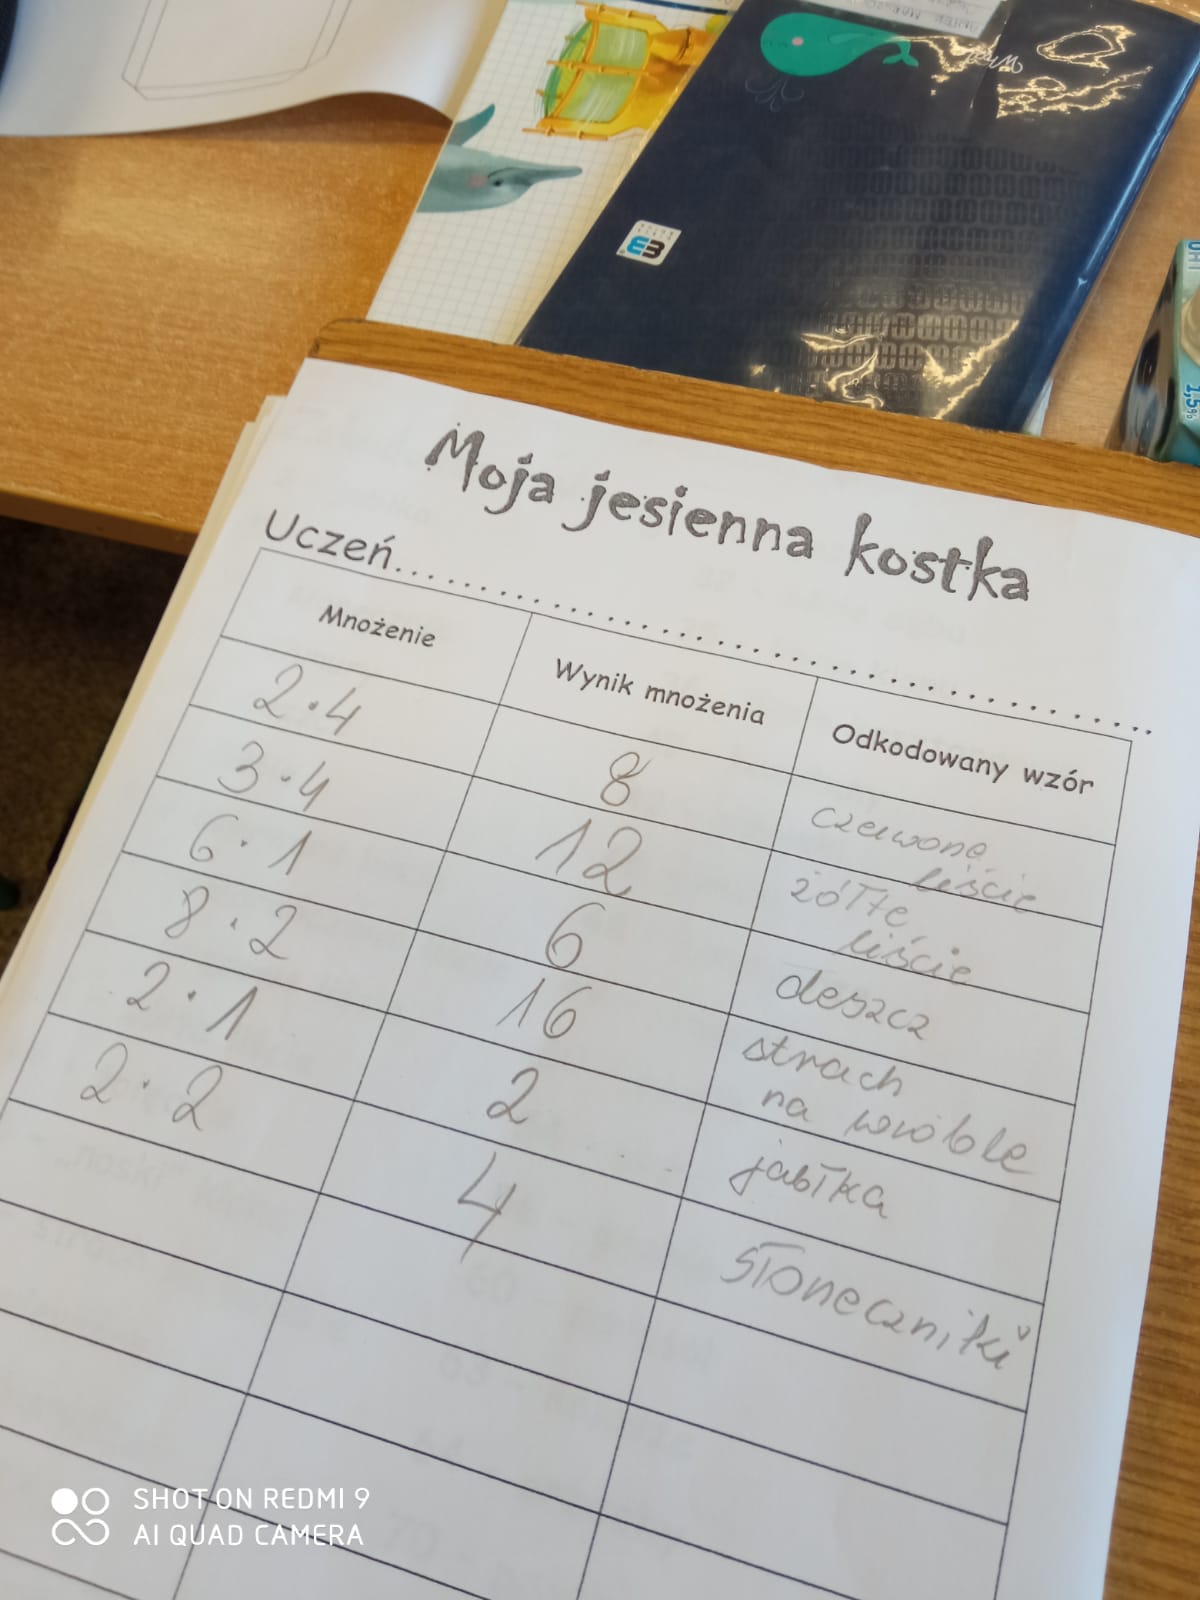 UHT
1,5%
Moja jesienna kostka
Uczeń..............................
Mnożenie Wynik mnożenia Odkodowany wzór
2·4 8 czerwone liście
3·4 12 żółte liście
6·1 6 deszcz
8·2 16 strach na wróble
2·1 2 jabłka
2·2 4 słoneczniki
SHOT ON REDMI 9
AI QUAD CAMERA